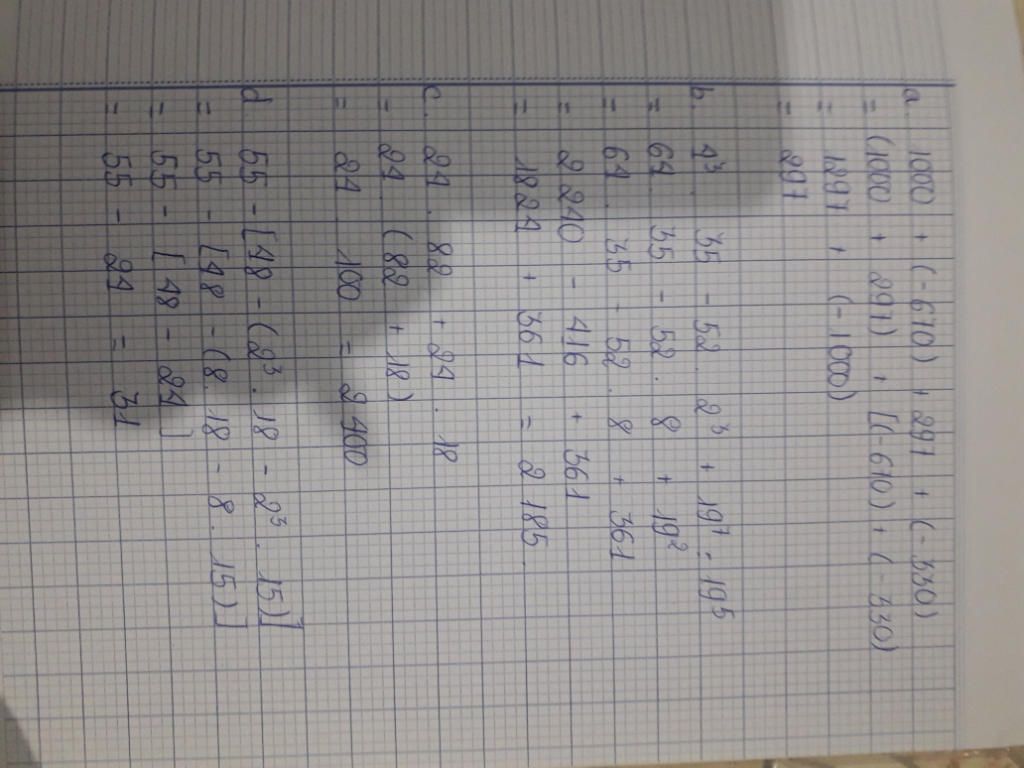 a. 1000 + (-670) + 297 + (-330)
= (1000 + 297) + [(-670) + (-330)
= 1297 + (-1000)
= 297
b. 4³ . 35 - 52 . 2³ + 19⁷ : 19⁵
= 64 . 35 - 52 . 8 + 19²
= 64 . 35 - 52 . 8 + 361
= 2 240 - 416 + 361
= 1824 + 361 = 2 185.
c. 24 . 82 + 24 . 18
= 24 . (82 + 18)
= 24 . 100 = 2 400
d. 55 - [48 - (2³ . 18 - 2³ . 15)]
= 55 - [48 - (8 . 18 - 8 . 15)]
= 55 - [48 - 24]
= 55 - 24 = 31